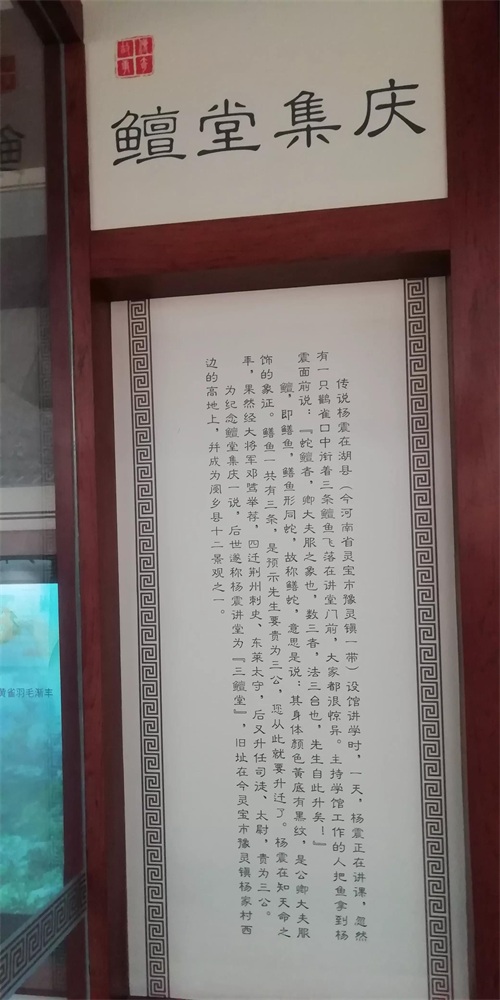 鳣堂集庆
传说杨震在湖县（今河南省灵宝市豫灵镇一带）设馆讲学时，一天，杨震正在讲课，忽然
有一只鹳雀口中衔着三条鳣鱼飞落在讲堂门前，大家都很惊异。主持学馆工作的人把鱼拿到杨
震面前说：『蛇鳣者，卿大夫服之象也，数三者，法三台也，先生自此升矣！』
鳣，即鳝鱼，鳝鱼形同蛇，故称鳝蛇，意思是说：其身体颜色黄底有黑纹，是公卿大夫服
饰的象征。鳝鱼一共有三条，是预示先生要贵为三公，您从此就要升迁了。杨震在知天命之
年，果然经大将军邓骘举荐，四迁荆州刺史、东莱太守，后又升任司徒、太尉，贵为三公。
为纪念鳣堂集庆一说，后世遂称杨震讲堂为『三鳣堂』，旧址在今灵宝市豫灵镇杨家村西
边的高地上，并成为阌乡县十二景观之一。
黄雀羽毛渐丰